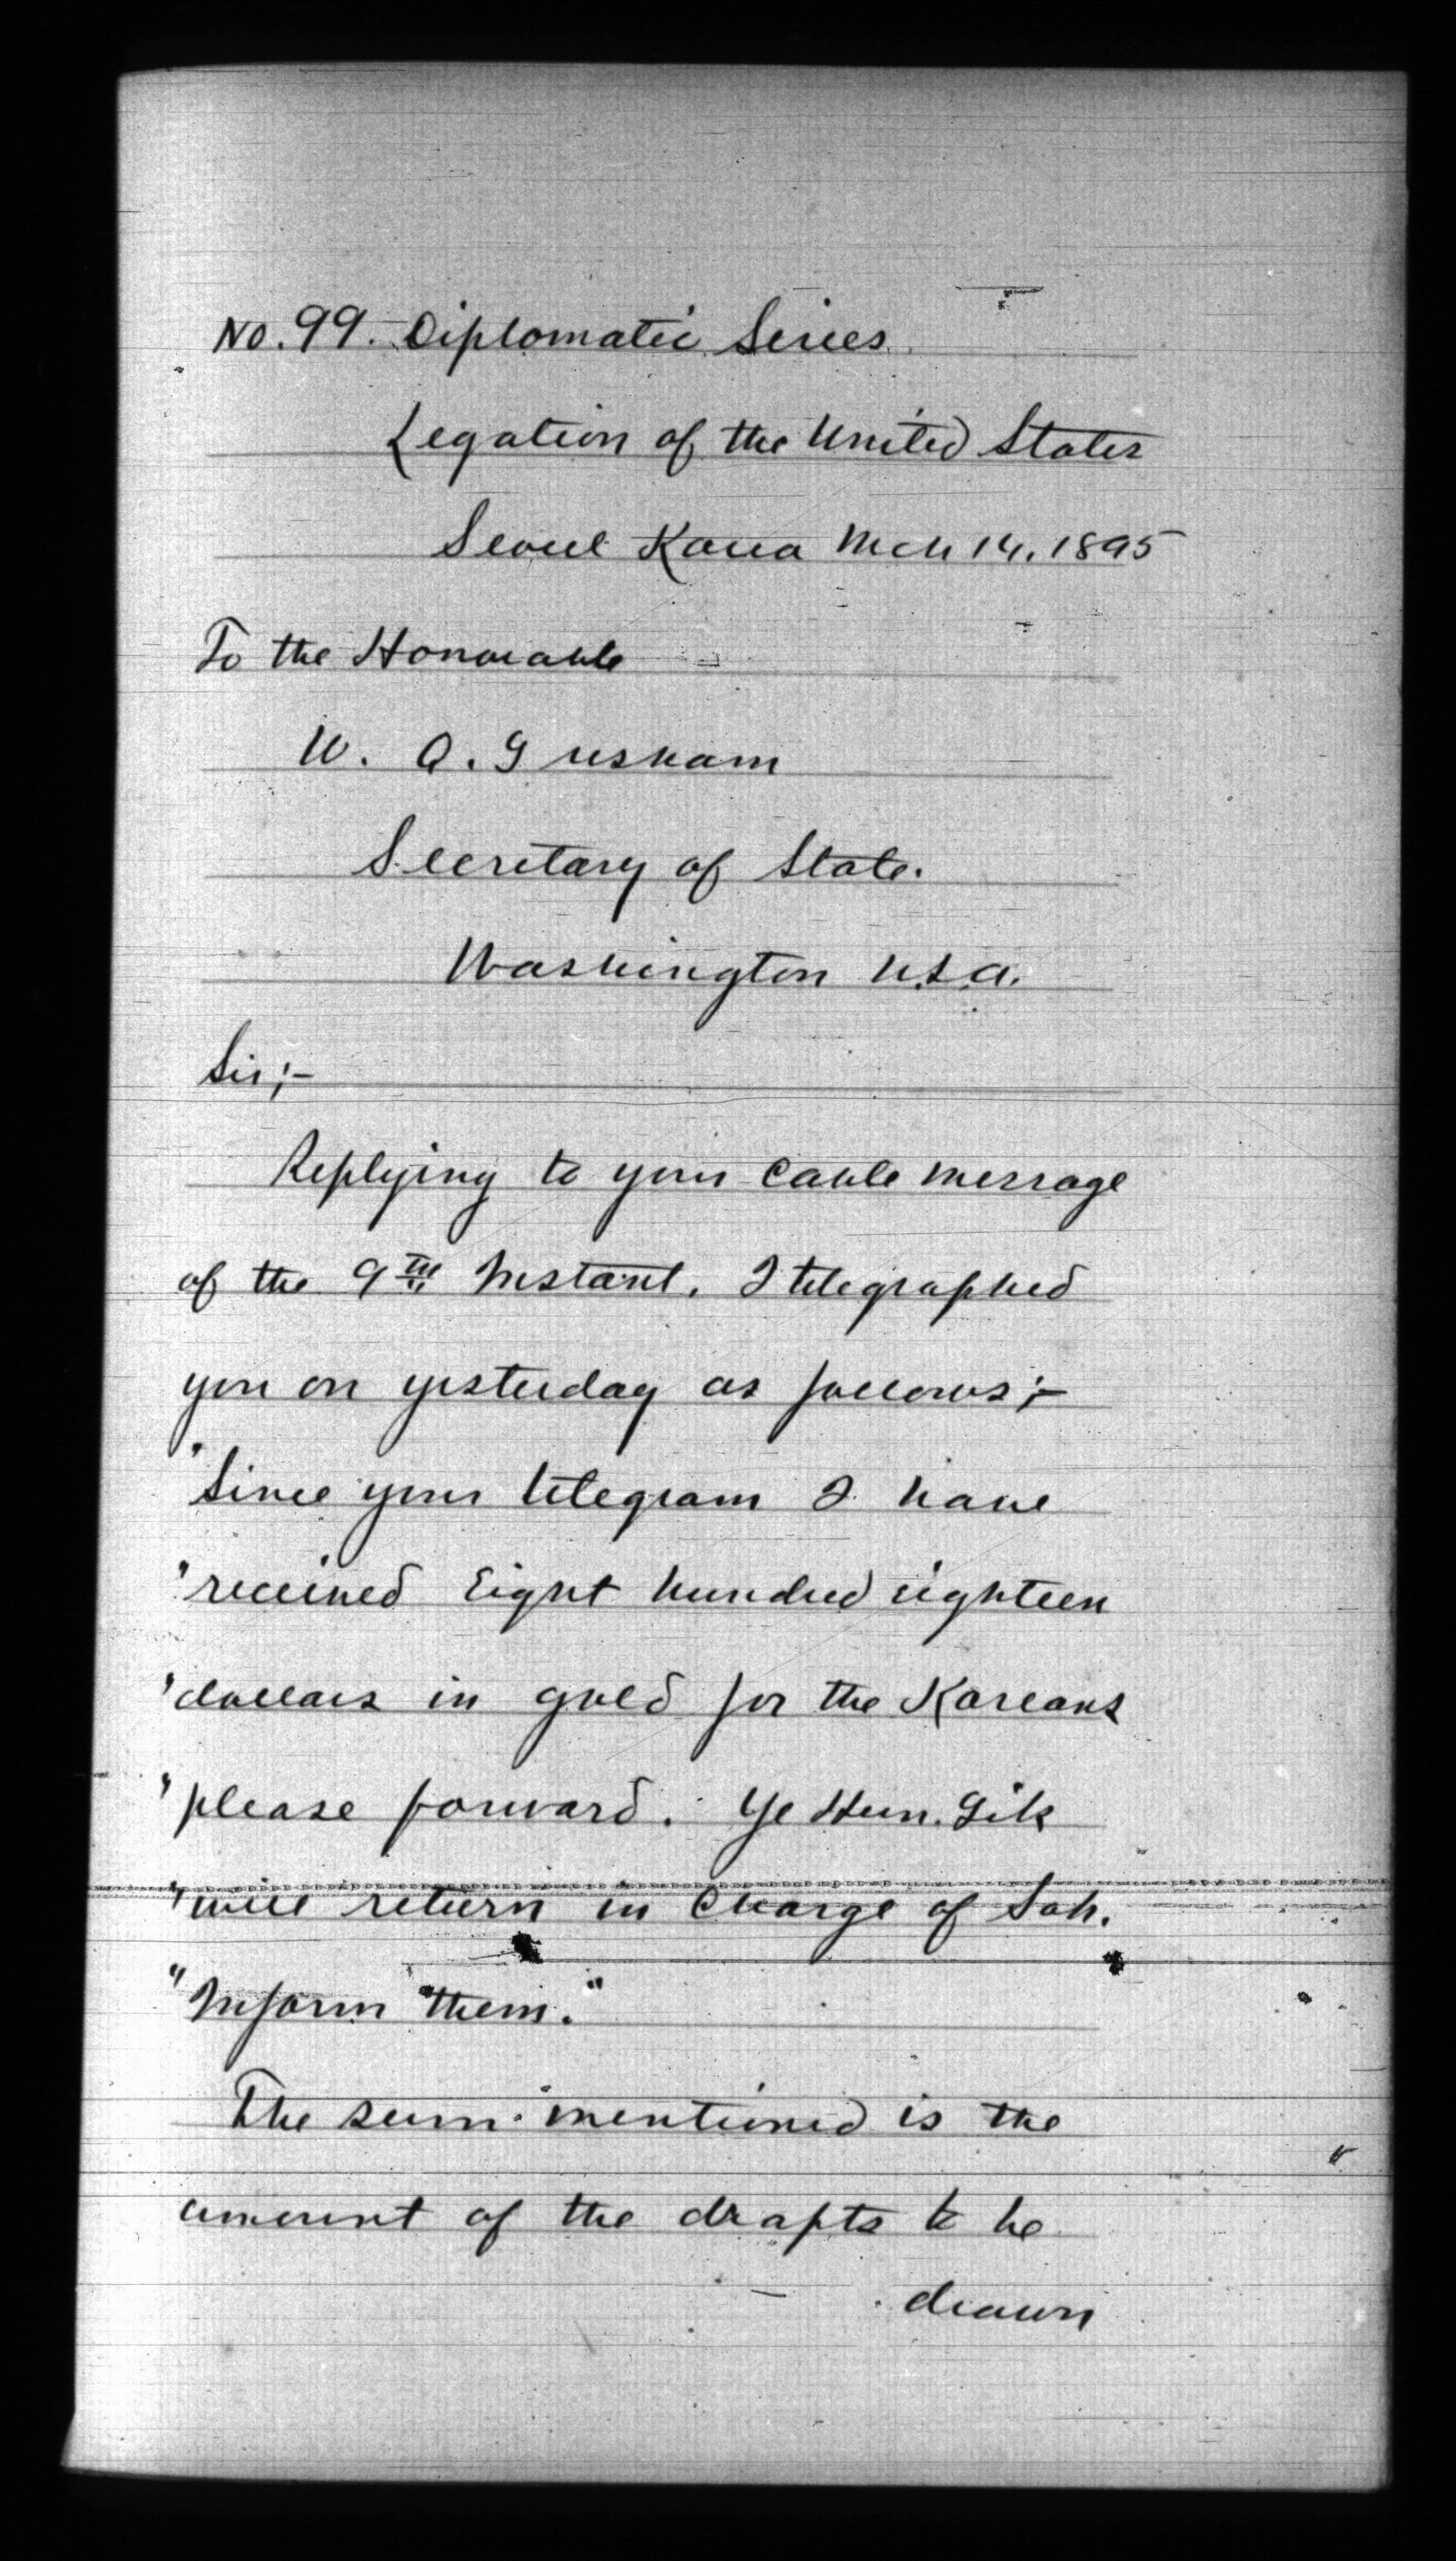 No. 99. Diplomatic Series
Legation of the United States
Seoul Korea Mch 14. 1895
To the Honorable
W. Q. Gresham
Secretary of State.
Washington U.S.A.
Sir;-
Replying to your cable message
of the 9th Instant, I telegraphed
you on yesterday as follows;-
"Since your telegram I have
"received Eight hundred eighteen
"dollars in gold for the Koreans
"please forward. Ye Hun. Sik
"will return in charge of Soh.
"Inform them."
The sum mentioned is the
amount of the drafts to be
drawn